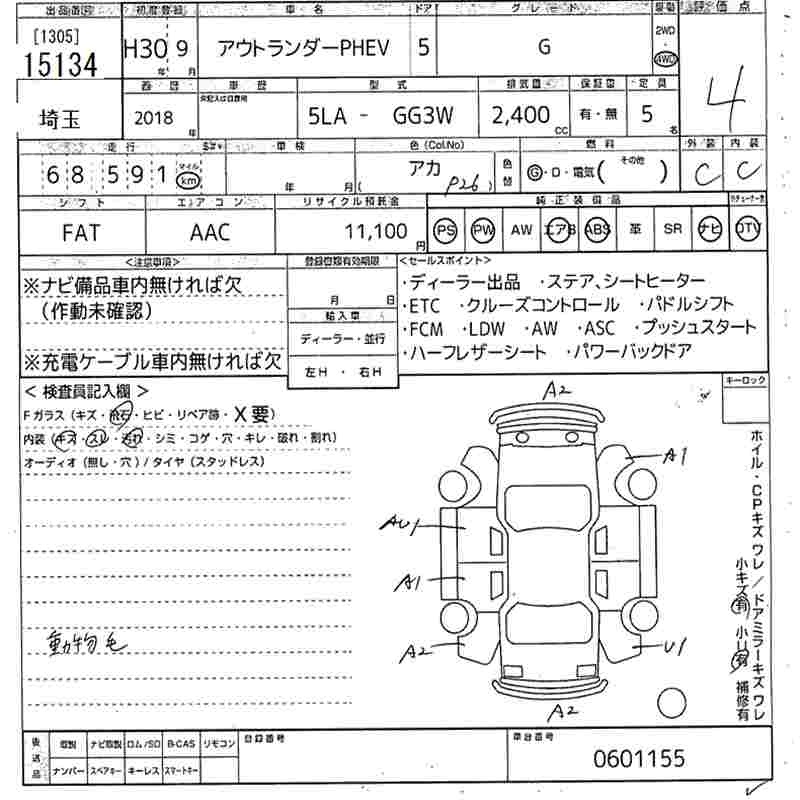 出品番号 初度登録 車名 ドア グレード 駆動 評価点
[1305]
15134 H30 9 アウトランダーPHEV 5 G 2WD ・ 4WD 4
年 月
西暦 車歴 型式 排気量 保証書 定員
未記入は自家用
埼玉 2018 年 5LA - GG3W 2,400 CC 有・無 5 名
走行 車検 色(Col.No) 燃料 外装 内装
68,591 マイル km 年 月 アカ (P26) 色替 G・D・電気( その他 ) C C
シフト エアコン リサイクル預託金 純正装備品
FAT AAC 11,100 円 PS PW AW エアB ABS 革 SR ナビ DTV
<注意事項> 登録登録有効期限 <セールスポイント>
※ナビ備品車内無ければ欠
(作動未確認)
※充電ケーブル車内無ければ欠
月 日
輸入車
ディーラー・並行
左H ・ 右H
・ディーラー出品 ・ステア、シートヒーター
・ETC ・クルーズコントロール ・パドルシフト
・FCM ・LDW ・AW ・ASC ・プッシュスタート
・ハーフレザーシート ・パワーバックドア
キーロック
< 検査員記入欄 >
Fガラス(キズ・飛石・ヒビ・リペア跡・X要)
内装(キズ・スレ・汚れ・シミ・コゲ・穴・キレ・破れ・割れ)
オーディオ(無し・穴)/タイヤ(スタッドレス)
動物毛
A2
A1
AU1
A1
A2
U1
A2
ホイル・CPキズワレ/ドアミラーキズワレ
小キズ有 小U有 補修有
後送品 取説 ナビ取説 ロム/SD B-CAS リモコン 登録番号 車台番号
ナンバー スペアキー キーレス スマートキー
0601155